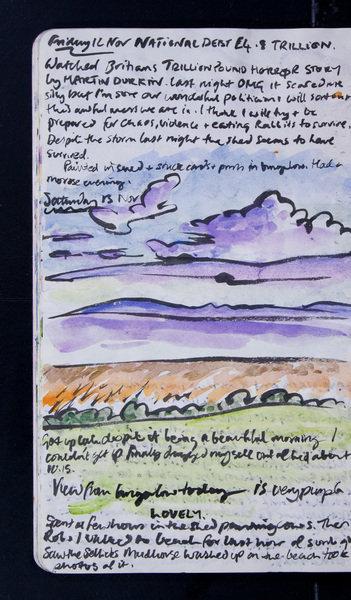 Friday 12 Nov NATIONAL DEBT £4.8 TRILLION.
Watched Britains TRILLION POUND HORROR STORY
by MARTIN DURKIN. last night OMG it scared me
silly but I'm sure our wonderful politicians will sort out
the awful mess we are in. I think I will try & be
prepared for chaos, violence & eating Rabbits to survive.
Despite the storm last night the shed seems to have
survived.
Painted in shed & stuck cards & prints in bungalow. Had a
morose evening.
Saturday 13 Nov
Got up late despite it being a beautiful morning I
couldn't get up finally dragged myself out of bed about
10.15.
View from bungalow today is very purple
LOVELY.
Spent a few hours in the shed painting cows. Then
Rob & I walked to beach for last hour of sunlight
Saw the Mudhorse washed up on the beach took
photos of it.